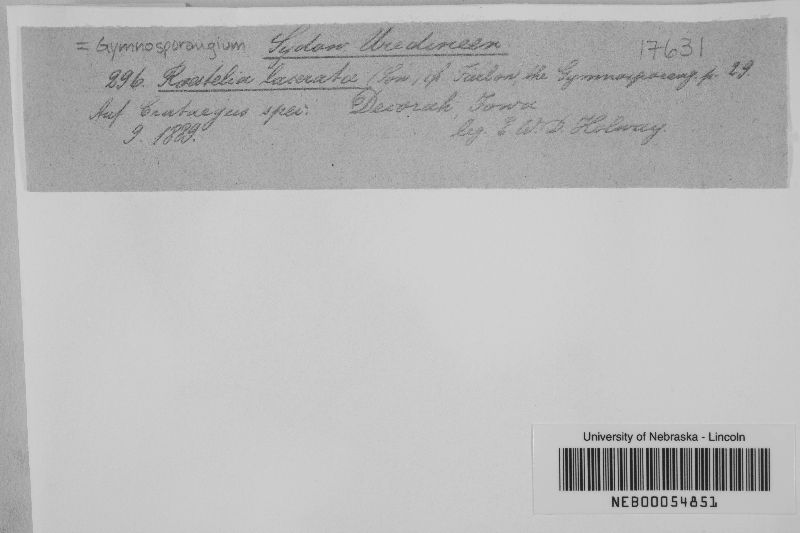 = Gymnosporangium Sydow. Uredineen 17631
296. Roestelia lacerata (Sow.) cf. Farlow, the Gymnosporang. p. 29
Auf Crataegus spec. Decorah, Iowa
9. 1889. leg. E. W. D. Holway.
University of Nebraska - Lincoln
NEB00054851